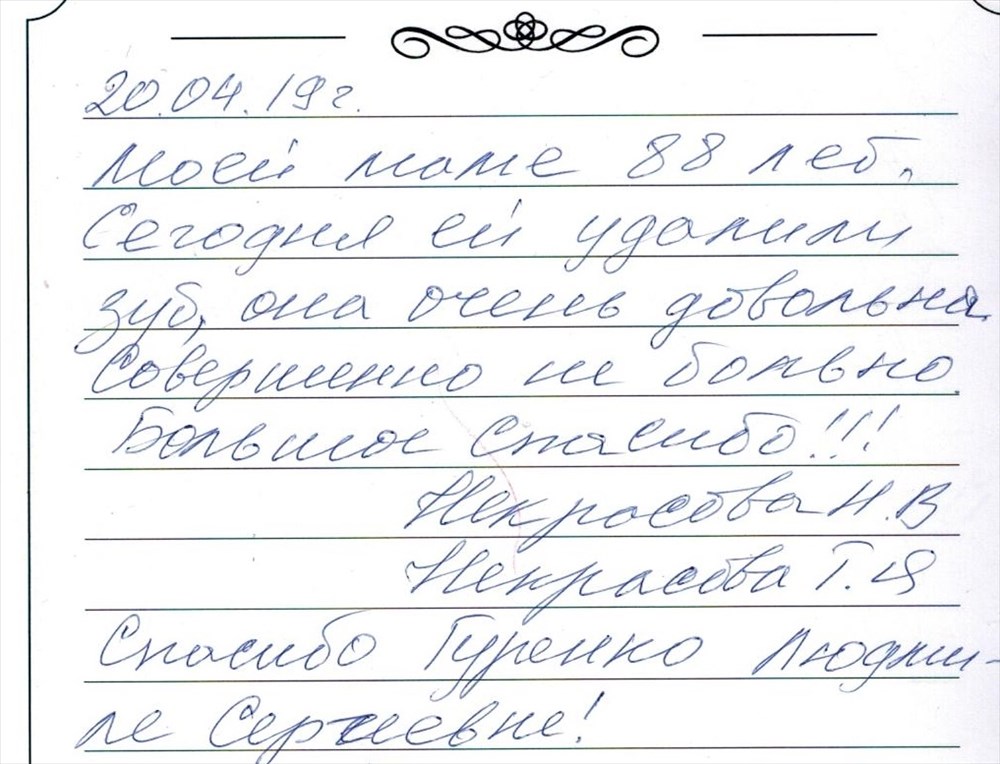 20.04.19г.
Моей маме 88 лет.
Сегодня ей удалили
зуб, она очень довольна.
Совершенно не больно.
Большое спасибо!!!
Некрасова Н.В
Некрасова Т.Я
Спасибо Гуренко Людми-
ле Сергеевне!